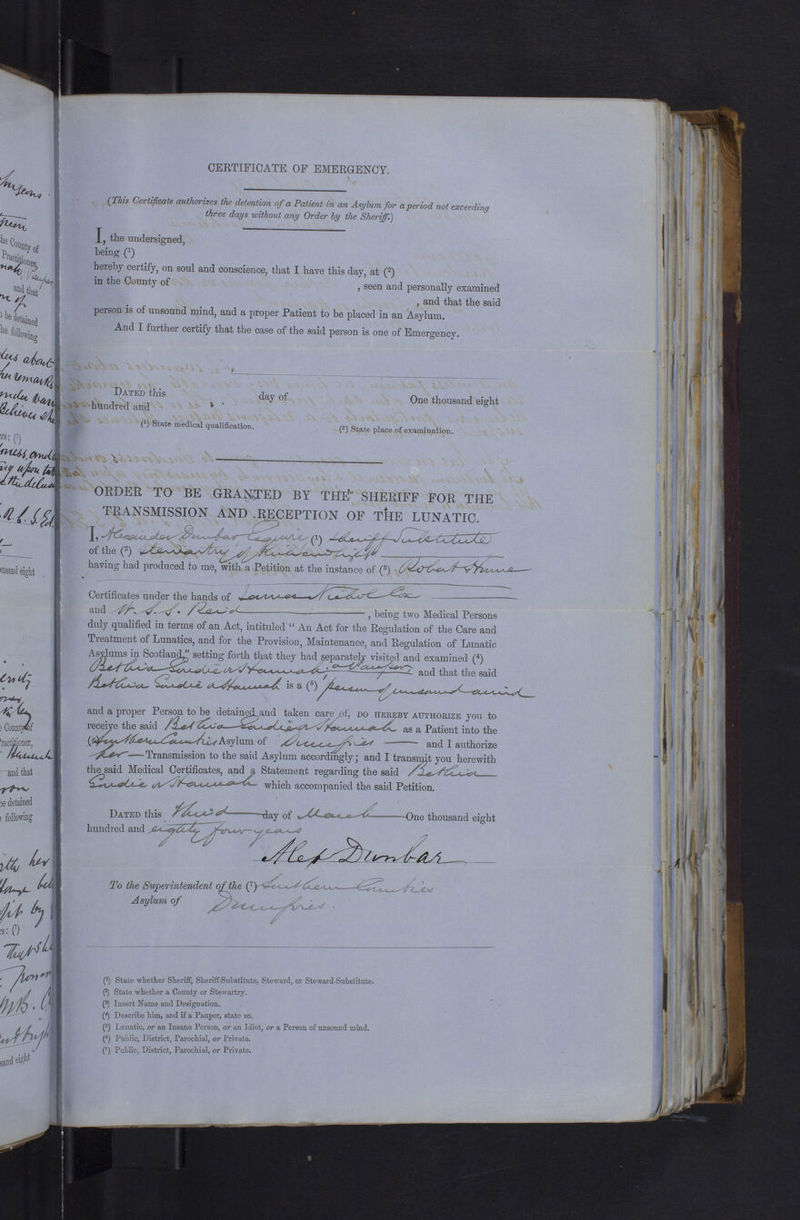 CERTIFICATE OF EMERGENCY.
(This Certificate authorizes the detention of a Patient in an Asylum for a period not exceeding
three days without any Order by the Sheriff.)
I, the undersigned,
being (¹)
hereby certify, on soul and conscience, that I have this day, at (²)
in the County of , seen and personally examined
, and that the said
person is of unsound mind, and a proper Patient to be placed in an Asylum.
And I further certify that the case of the said person is one of Emergency.
DATED this day of One thousand eight
hundred and
(¹) State medical qualification. (²) State place of examination.
ORDER TO BE GRANTED BY THE SHERIFF FOR THE
TRANSMISSION AND RECEPTION OF THE LUNATIC.
I, Alexander Dunbar Esquire (¹) Sheriff Substitute
of the (²) Stewartry of Kirkcudbright
having had produced to me, with a Petition at the instance of (³) Robert
Certificates under the hands of James Cox
and W. S. S. Reid, being two Medical Persons
duly qualified in terms of an Act, intituled "An Act for the Regulation of the Care and
Treatment of Lunatics, and for the Provision, Maintenance, and Regulation of Lunatic
Asylums in Scotland," setting forth that they had separately visited and examined (⁴)
Bethia Goudie or Hannah a Pauper and that the said
Bethia Goudie or Hannah is a (⁵) person of unsound mind
and a proper Person to be detained and taken care of, DO HEREBY AUTHORIZE you to
receive the said Bethia Goudie or Hannah as a Patient into the
(⁶) Southern Counties Asylum of Dumfries and I authorize
her Transmission to the said Asylum accordingly; and I transmit you herewith
the said Medical Certificates, and a Statement regarding the said Bethia
Goudie or Hannah which accompanied the said Petition.
DATED this Third day of March One thousand eight
hundred and eighty four years
Alex Dunbar
To the Superintendent of the (⁷) Southern Counties
Asylum of Dumfries.
(¹) State whether Sheriff, Sheriff-Substitute, Steward, or Steward-Substitute.
(²) State whether a County or Stewartry.
(³) Insert Name and Designation.
(⁴) Describe him, and if a Pauper, state so.
(⁵) Lunatic, or an Insane Person, or an Idiot, or a Person of unsound mind.
(⁶) Public, District, Parochial, or Private.
(⁷) Public, District, Parochial, or Private.